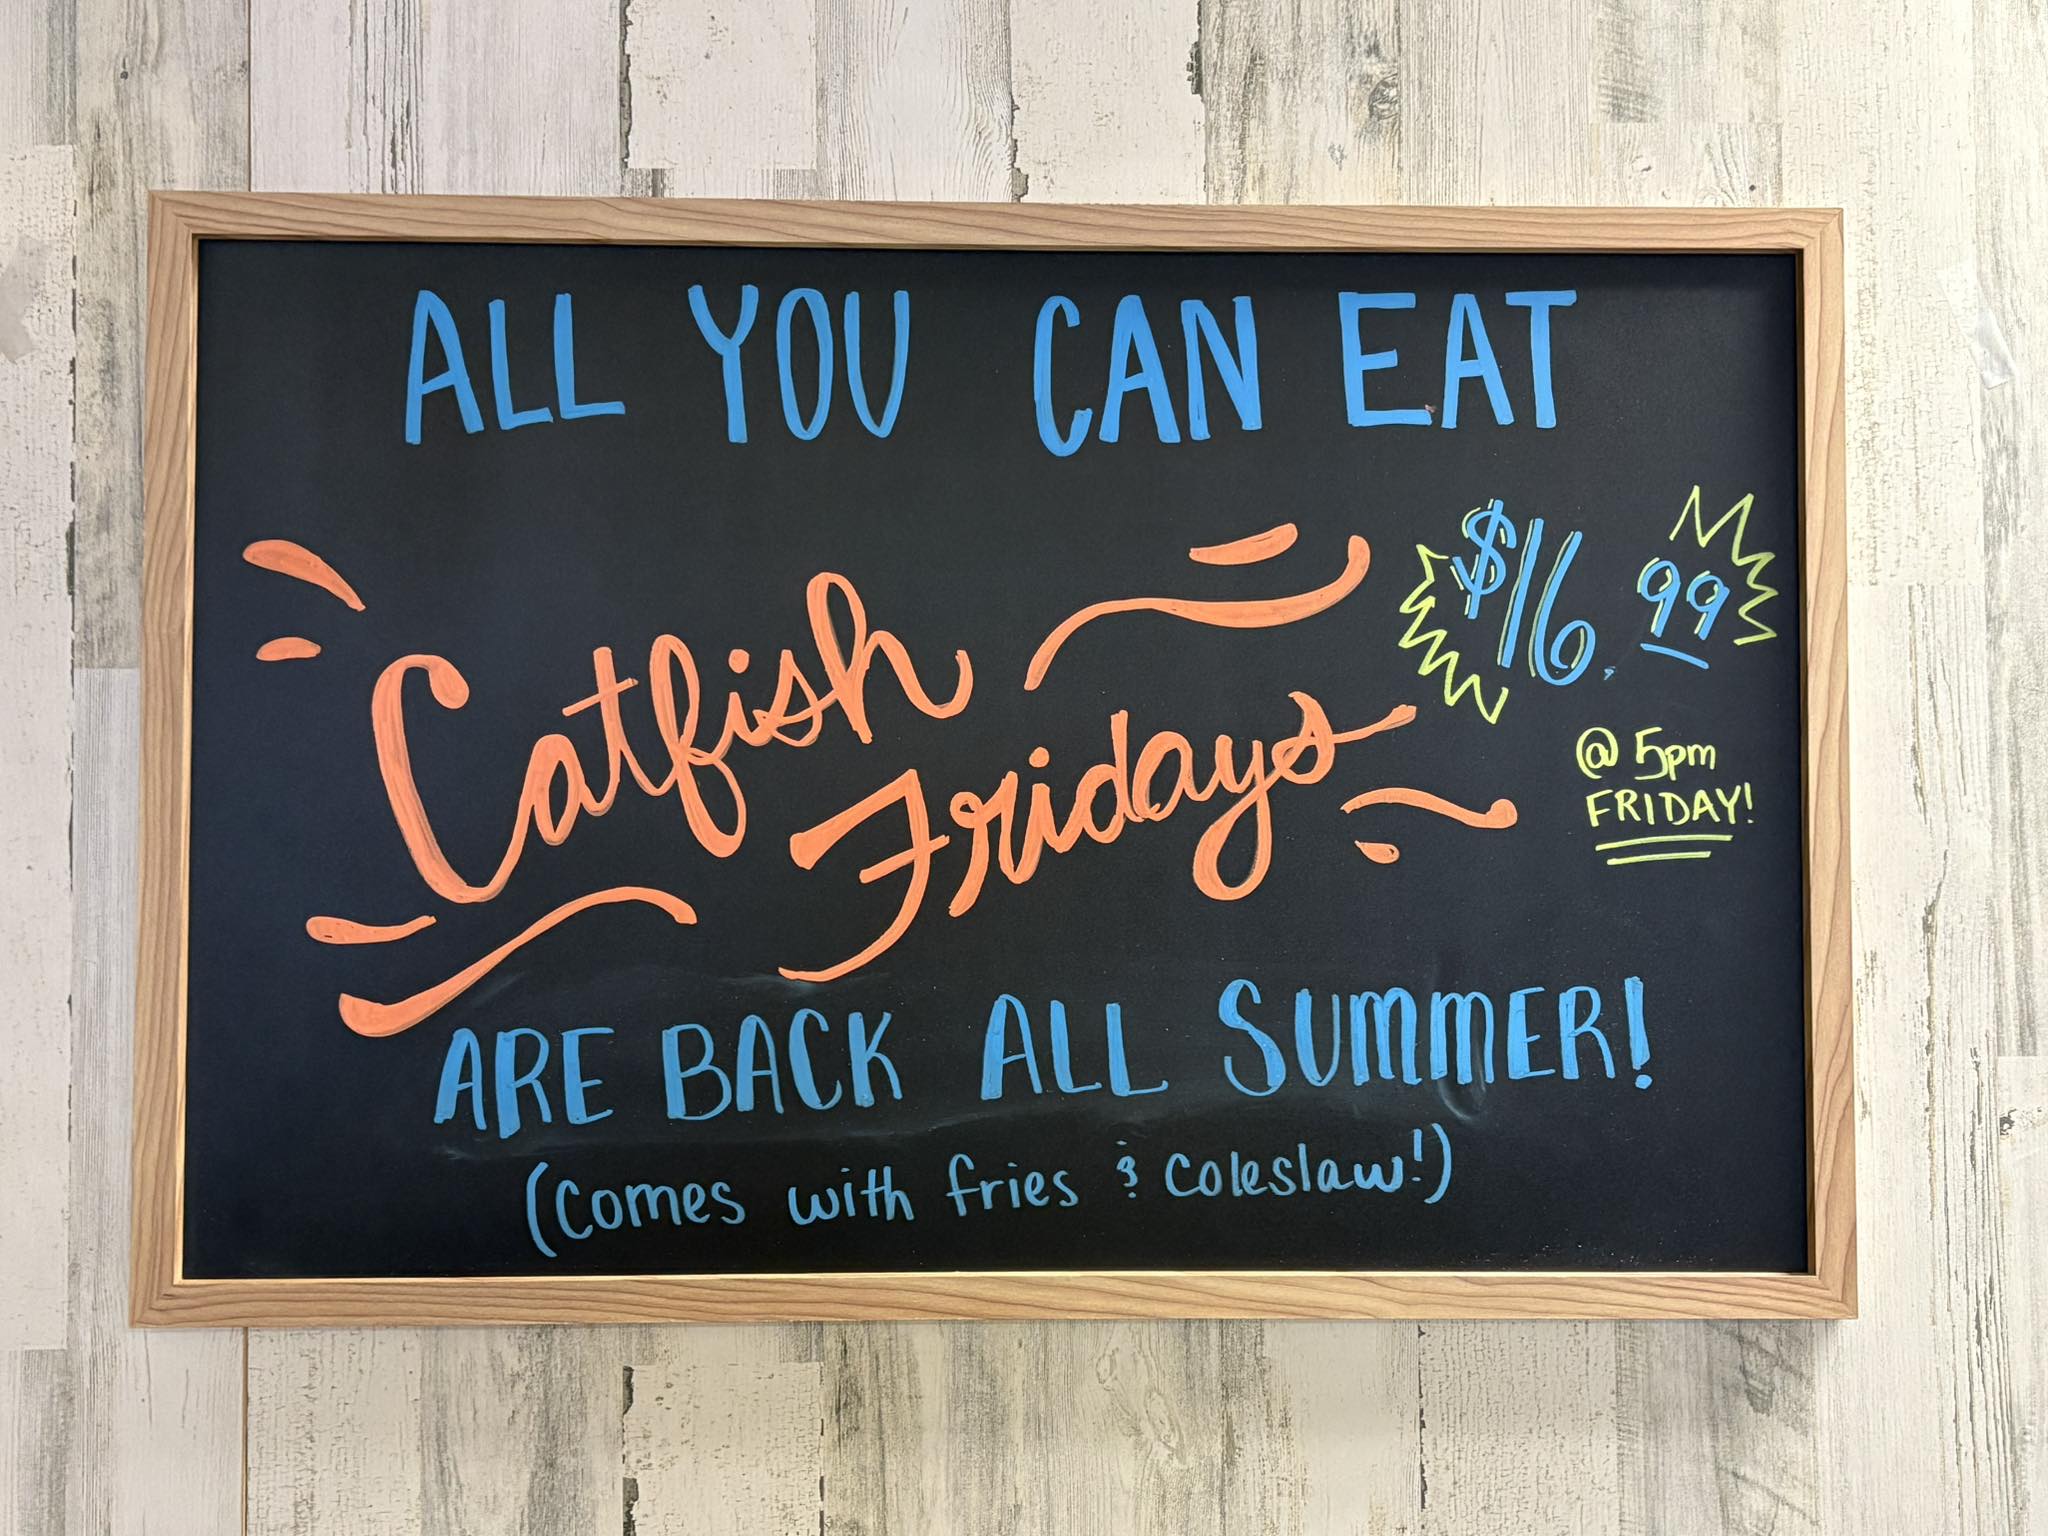 ALL YOU CAN EAT
Catfish
Fridays
$16.99
@ 5pm
FRIDAY!
ARE BACK ALL SUMMER!
(Comes with fries & coleslaw!)